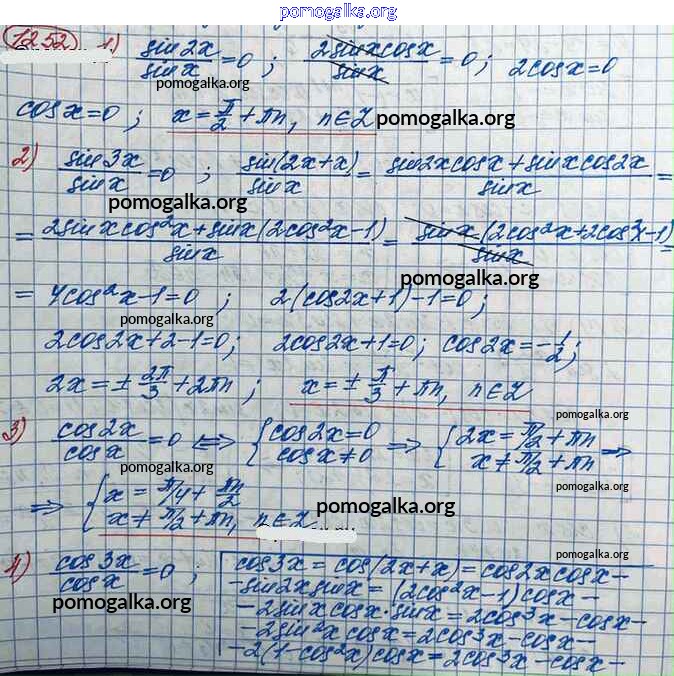 pomogalka.org
1252 1) sin2x/sinx = 0 ; 2sinxcosx/sinx = 0 ; 2cosx=0
pomogalka.org
cosx=0 ; x = π/2 + πn, n∈Z pomogalka.org
2) sin3x/sinx = 0 ; sin(2x+x)/sinx = sin2xcosx+sinxcos2x/sinx =
pomogalka.org
= 2sinxcos²x+sinx(2cos²x-1)/sinx = sinx(2cos²x+2cos²x-1)/sinx =
pomogalka.org
= 4cos²x-1=0 ; 2(cos2x+1)-1=0 ;
pomogalka.org
2cos2x+2-1=0; 2cos2x+1=0; cos2x=-1/2;
2x=± 2π/3 +2πn ; x=± π/3 +πn, n∈Z
pomogalka.org
pomogalka.org
3) cos2x/cosx = 0 ⇔ { cos2x=0 cosx≠0 ⇒ { 2x=π/2+πn x≠π/2+πn ⇒
pomogalka.org
pomogalka.org
⇒ { x = π/4 + πn/2 x≠π/2+πn, n∈Z
pomogalka.org
pomogalka.org
4) cos3x/cosx = 0 ; cos3x=cos(2x+x)=cos2xcosx-
-sin2xsinx=(2cos²x-1)cosx-
pomogalka.org
-2sinxcosx·sinx=2cos³x-cosx-
-2sin²xcosx=2cos³x-cosx-
pomogalka.org
-2(1-cos²x)cosx=2cos³x-cosx-